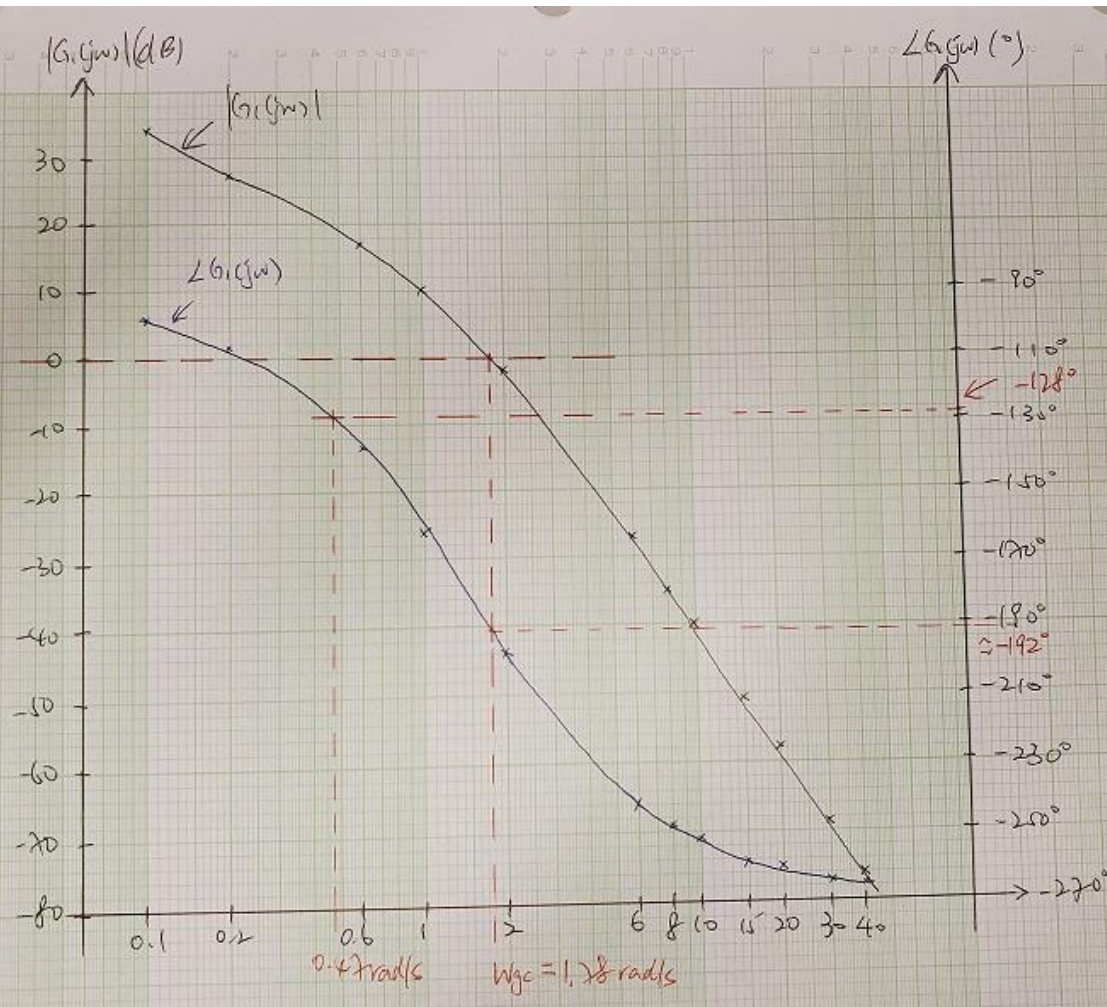 |G₁(jω)|(dB)
∠G₁(jω) (°)
|G₁(jω)|
∠G₁(jω)
30
20
10
0
-10
-20
-30
-40
-50
-60
-70
-80
-90°
-110°
-128°
-130°
-150°
-170°
-190°
≃-192°
-210°
-230°
-250°
-270°
0.1
0.2
0.6
1
2
6
8
10
15
20
30
40
0.47rad/s
Wgc = 1.78 rad/s